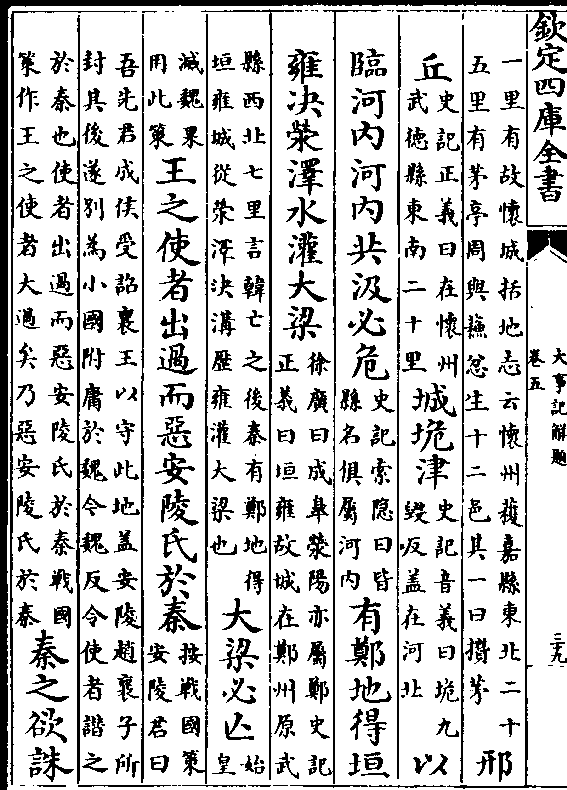 欽定四庫全書
大事記解題
卷五
三九
一里有故懷城括地志云懷州獲嘉縣東北二十
五里有茅亭周與蘇忿生十二邑其一曰攢茅
邢
丘
史記正義曰在懷州
武德縣東南二十里
城垝津
史記音義曰垝九
毀反蓋在河北
以
臨河內河內共汲必危
史記索隱曰皆
縣名俱屬河內
有鄭地得垣
雍决滎澤水灌大梁
徐廣曰成臯滎陽亦屬鄭史記
正義曰垣雍故城在鄭州原武
縣西北七里言韓亡之後秦有鄭地得
垣雍城從滎澤決溝歷雍灌大梁也
大梁必亡
始
皇
滅魏果
用此策
王之使者出過而惡安陵氏於秦
按戰國策
安陵君曰
吾先君成侯受詔襄王以守此地蓋安陵趙襄子所
封其後遂别為小國附庸於魏今魏反令使者譖之
於秦也使者出過而惡安陵氏於秦戰國
策作王之使者大過矣乃惡安陵氏於秦
秦之欲誅